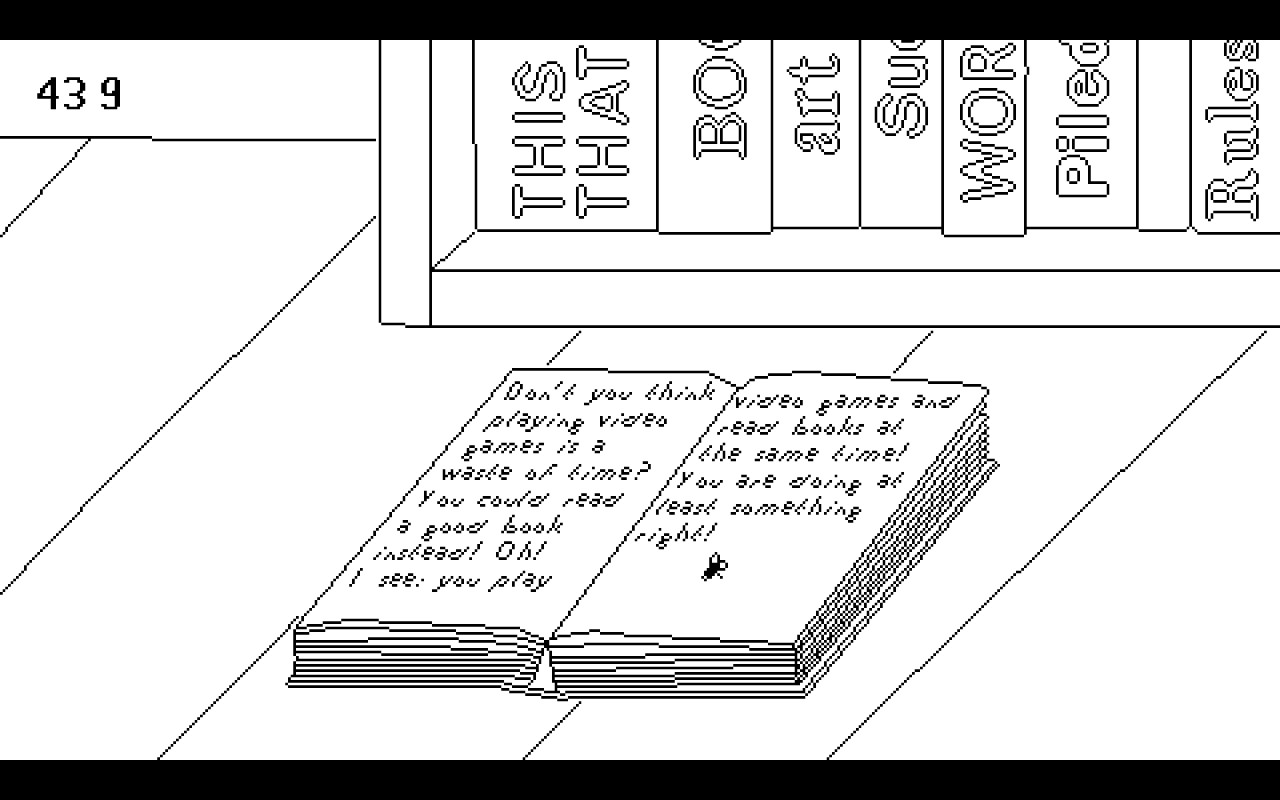 439
THIS
THAT
BOO
art
Suc
WOR
Piled
Rules
Don't you think
playing video
games is a
waste of time?
You could read
a good book
instead! Oh!
I see: you play
video games and
read books at
the same time!
You are doing at
least something
right!